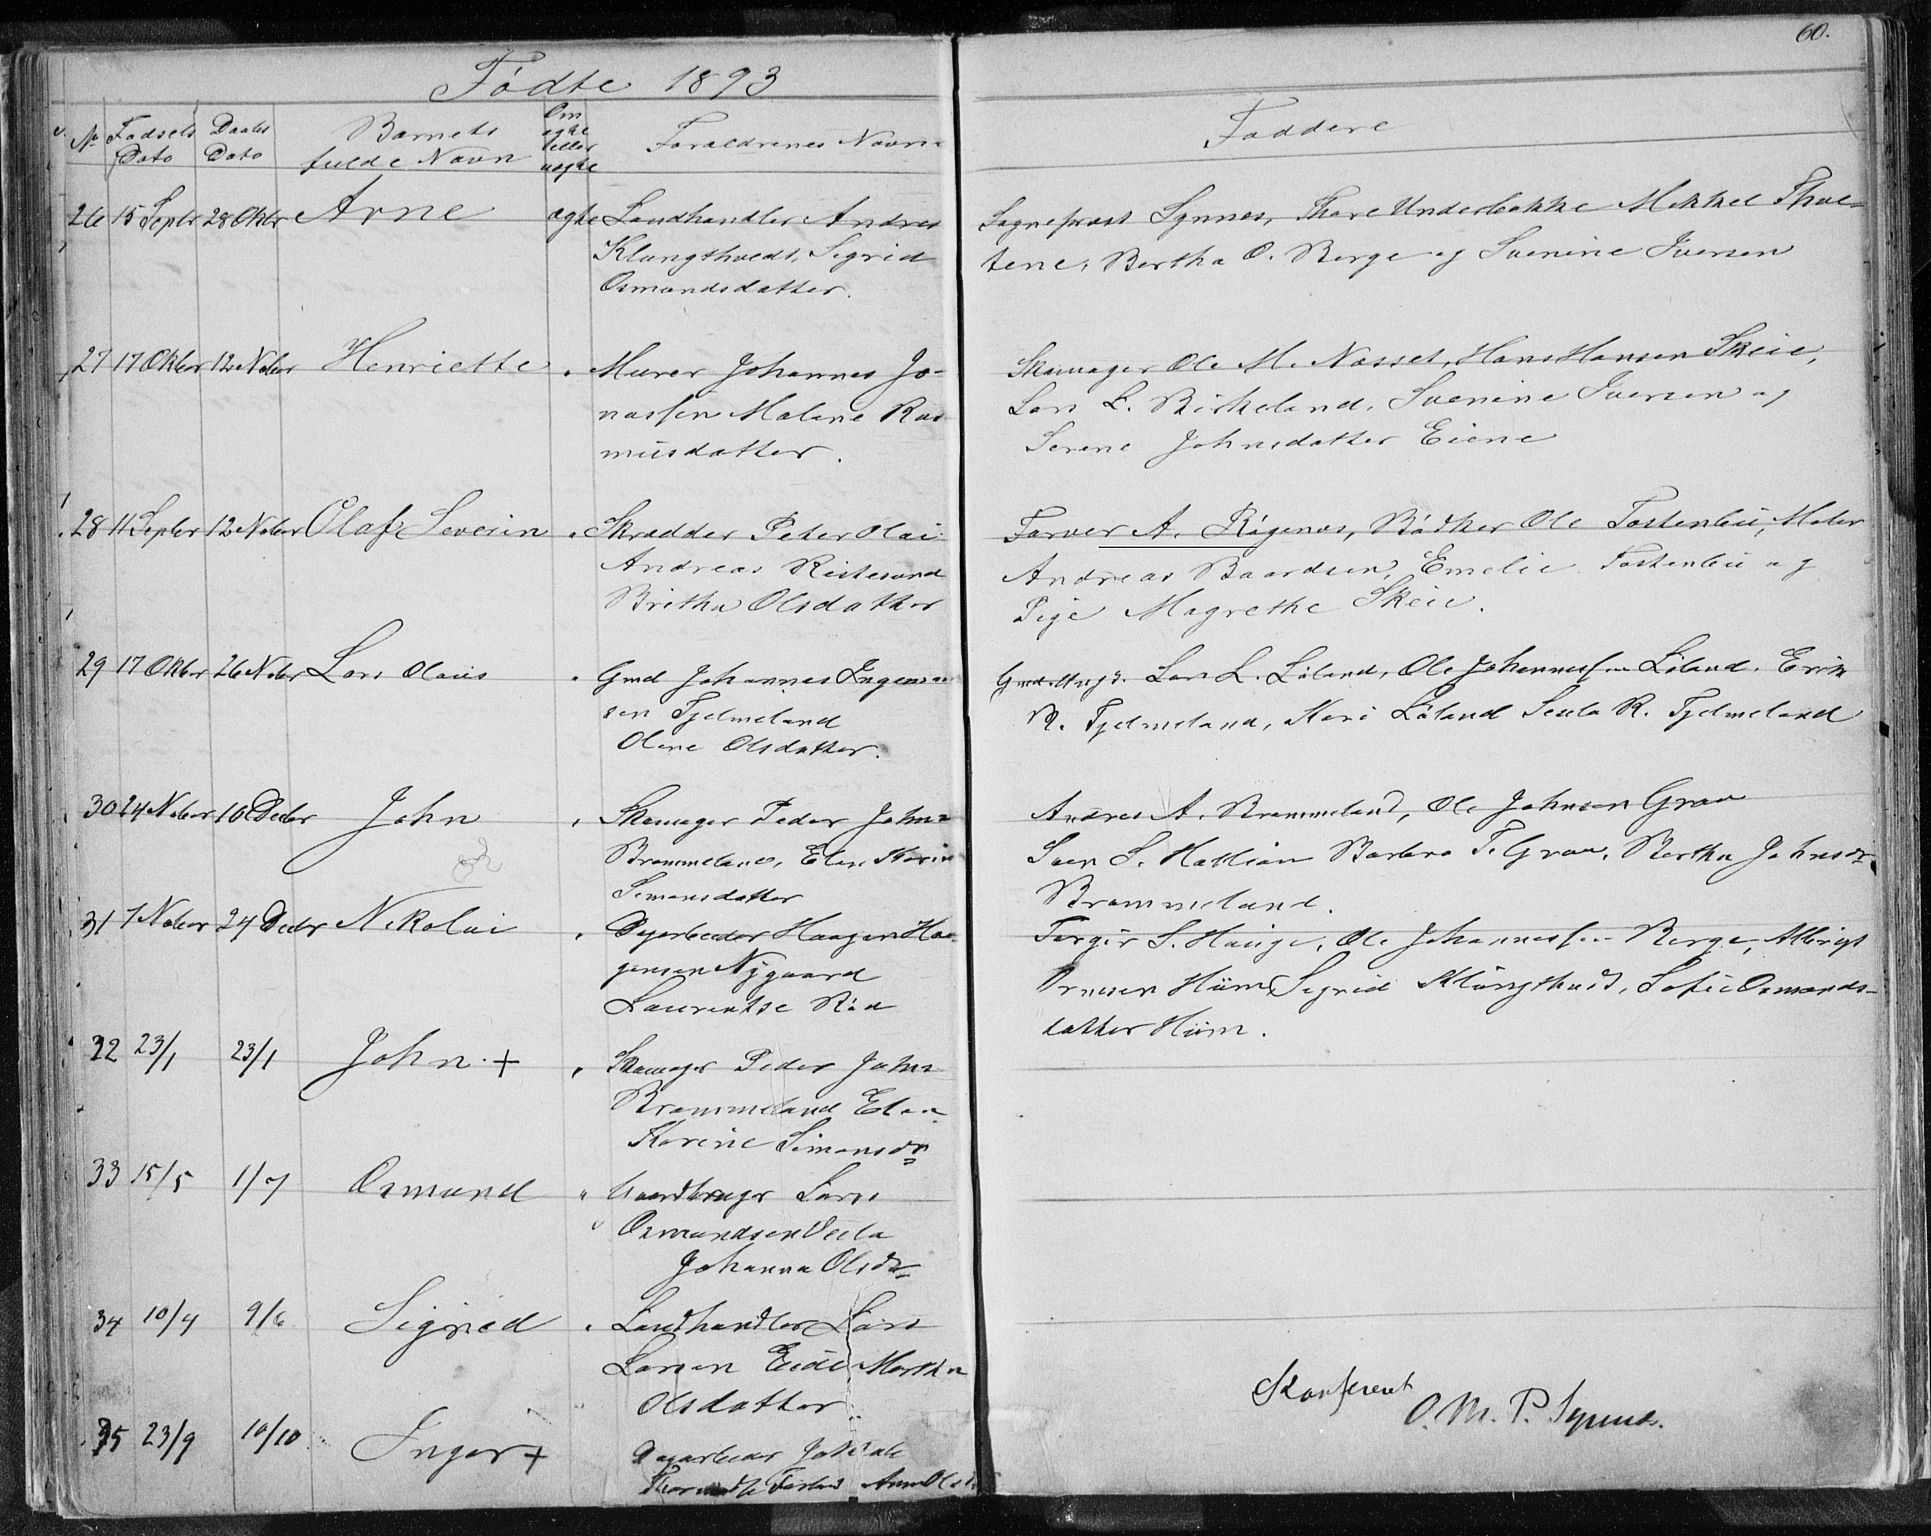 60.
Födte 1893
No Födsels Dato Daabs Dato Barnets fulde Navn Om ægte eller uægte Forældrenes Navn
Faddere
26 15 Septbr 28 Oktbr Arne ægte Landhandler Andreas
Klungtvedt, Sigrid
Osmundsdatter.
Sognepræst Synnes, Thore Underbakke Mikkel
tene, Bertha O. Berge og Svenine Iversen
27 17 Oktbr 12 Nobr Henriette " Murer Johannes Jo-
nassen Malene Ras
musdatter.
Skomager Ole M. Nasset, Hans Hansen Skeie,
Lars L. Birkeland, Svenine Iversen og
Serene Johnsdatter Eiene
28 11 Septbr 12 Nobr Olaf Severin " Skrædder Peter Olai
Andreas Ristesund
Britha Olsdatter
Farver A. Rägenes, Bödker Ole Tostenbü, Maler
Andreas Baardsen, Emelie Tostenbü og
Pige Magrethe Skeie.
29 17 Oktbr 26 Nobr Lars Olaus " Gmd Johannes
sen Tjelmeland
Olene Olsdatter.
Lars L. Löland, Ole Johannessen Löland, Erik
R. Tjelmeland, Kari Löland R. Tjelmeland
30 24 Nobr 10 Decbr John " Skomager Peder Johns
Brommeland, Elen Karin
Simonsdatter
Andreas A. Brommeland, Ole Johnsen Grov
Sven S. Barbro T. Grov, Bertha Johnsdr
Brommeland.
31 7 Nobr 24 Decbr Nikolai " Dagarbeider Haagen Haa
gensen Nygaard
Laurentse
Torger S. Hauge, Ole Johannessen Berge, Albrigt
Hüm, Sigrid Klüngtvedt, Sofie Osmunds-
datter Hüm.
32 23/1 23/1 John + " Skomager Peder Johns
Brommeland Elen
Karine Simonsdr
33 15/5 1/7 Osmund " Gaardbruger Lars
" Osmundsen
Johanna Olsdr
34 10/4 9/6 Sigrid " Landhandler Lars
Larsen Eide Martha
Olsdatter
35 23/9 10/10 Inger + Dagarbeider
Anna Ols
Konfereret
O. M. P. Synnes.